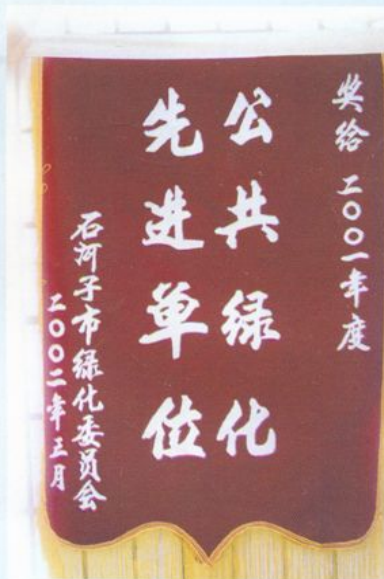 奖给 二〇〇一年度
公共绿化
先进单位
石河子市绿化委员会
二〇〇二年三月